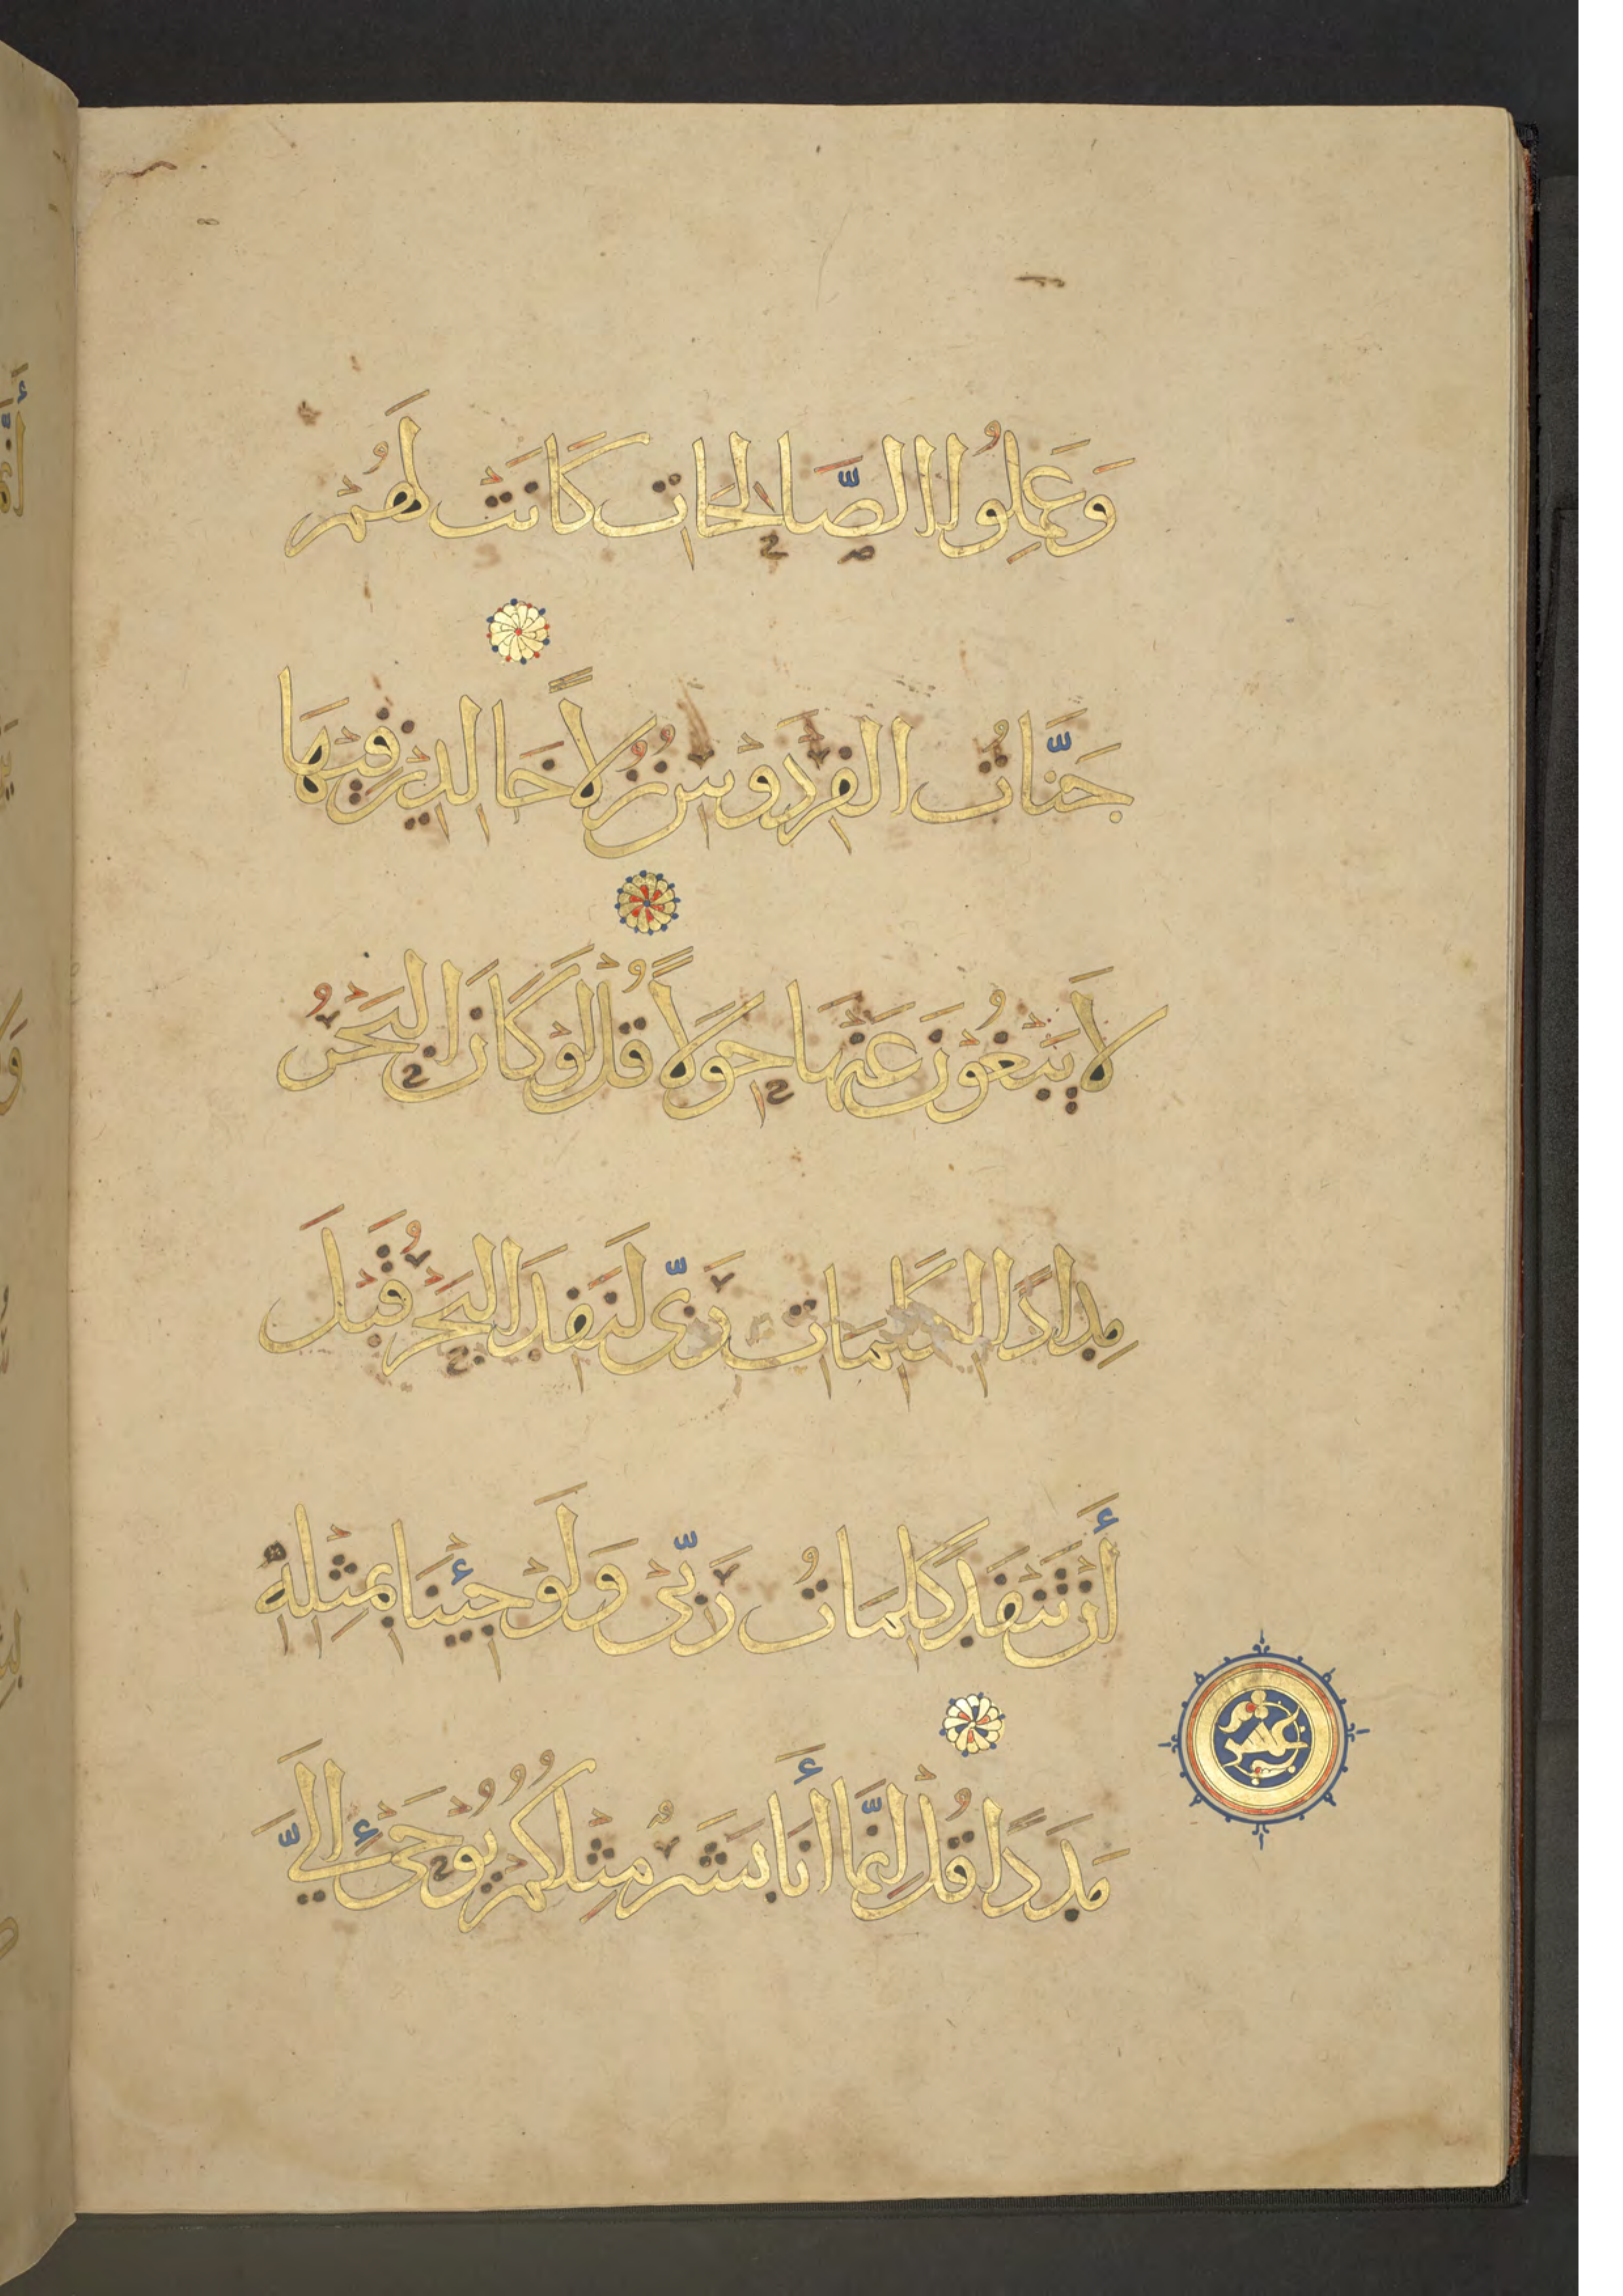 وَعَمِلُوا الصَّالِحَاتِ كَانَتْ لَهُمْ
جَنَّاتُ الْفِرْدَوْسِ نُزُلًا خَالِدِينَ فِيْهَا
لَا يَبْغُوْنَ عَنْهَا حِوَلًا قُلْ لَوْ كَانَ الْبَحْرُ
مِدَادًا لِكَلِمَاتِ رَبِّى لَنَفِدَ الْبَحْرُ قَبْلَ
أَنْ تَنْفَدَ كَلِمَاتُ رَبِّى وَلَوْ جِئْنَا بِمِثْلِهِ
مَدَدًا قُلْ إِنَّمَا أَنَا بَشَرٌ مِثْلُكُمْ يُوْحَى إِلَيَّ
عشر